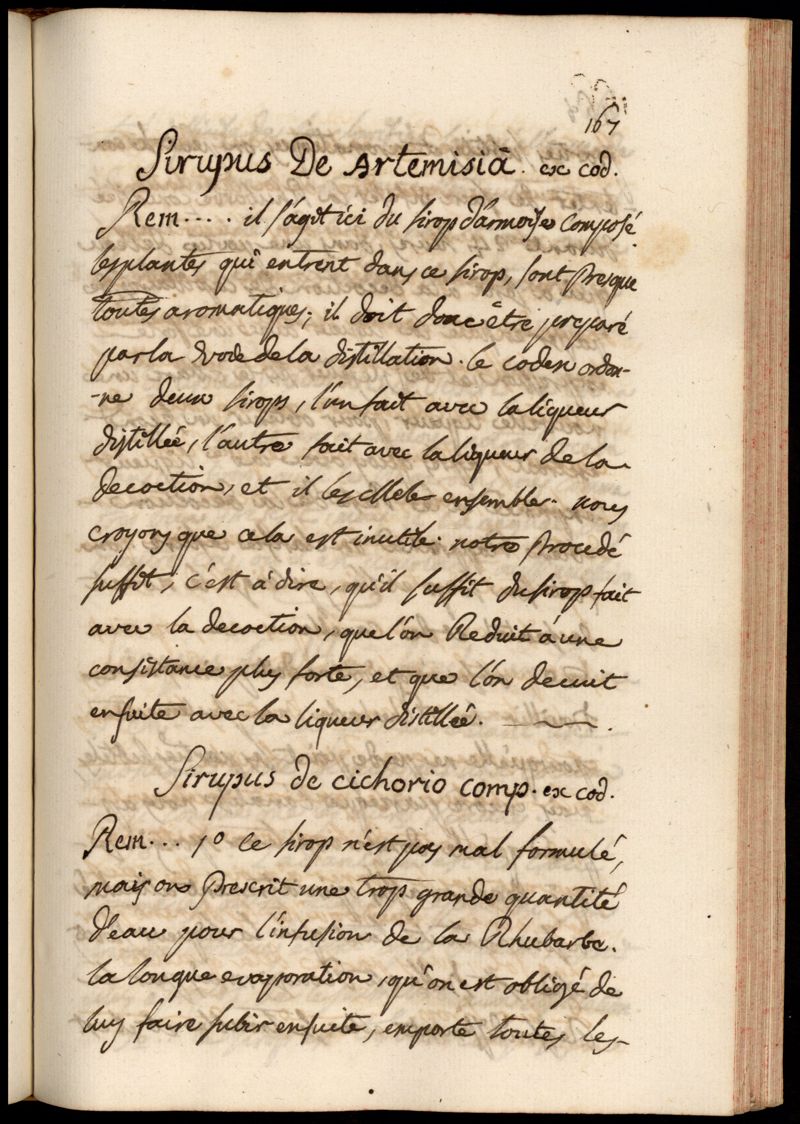 167
Sirupus De Artemisiâ. ex cod.
Rem.... il s'agit ici du sirop d'armoise composé
les plantes qui entrent dans ce sirop, sont presque
toutes aromatiques; il doit donc être preparé
par la voie de la distillation. le codex ordon-
-ne deux sirops, l'un fait avec la liqueur
distillée, l'autre fait avec la liqueur de la
decoction, et il les Mele ensemble. nous
croyons que cela est inutile. notre procedé
suffit, c'est à dire, qu'il suffit du sirop fait
avec la decoction, que l'on Reduit à une
consistance plus forte, et que l'on decuit
ensuite avec la liqueur distillée.
Sirupus de cichorio comp. ex cod.
Rem... 1º ce sirop n'est pas mal formulé,
mais on prescrit une trop grande quantité
d'eau pour l'infusion de la Rhubarbe.
la longue evaporation, qu'on est obligé de
luy faire subir ensuite, emporte toutes les-